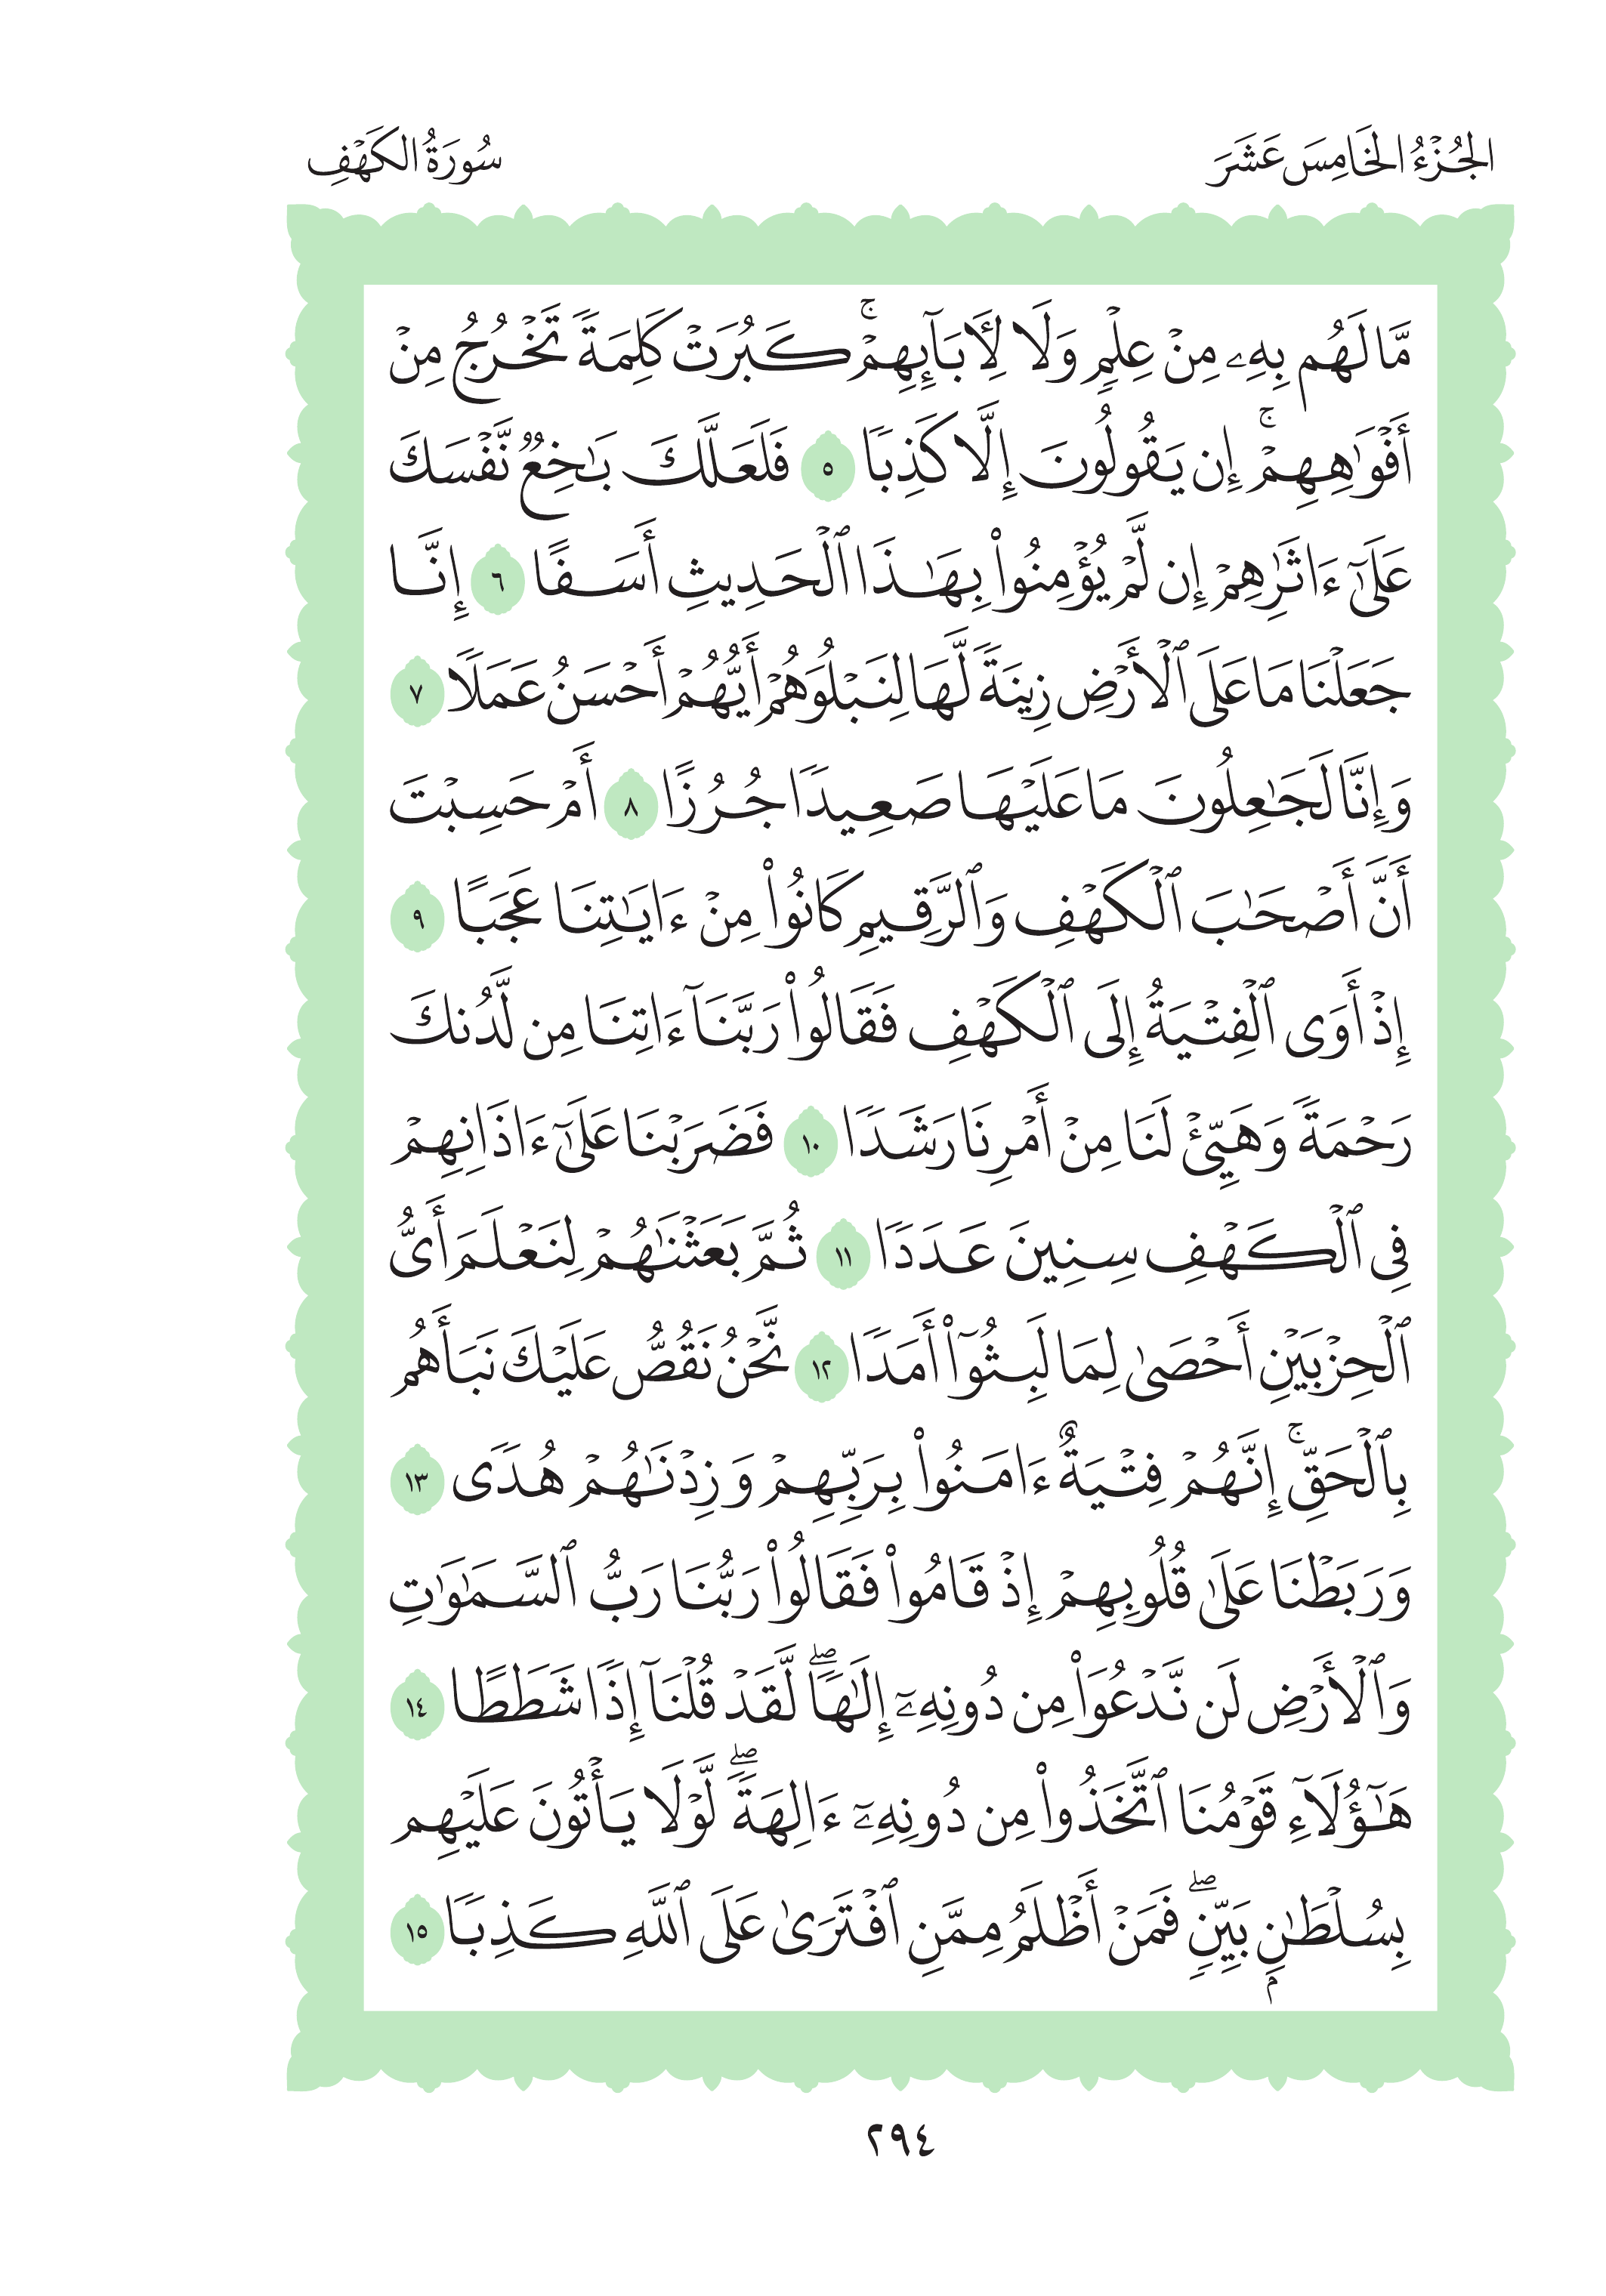 الجُزْءُ الخَامِسَ عَشَرَ
سُورَةُ الكَهْفِ
مَّا لَهُم بِهِۦ مِنْ عِلْمٍ وَلَا لِأٓبَآئِهِمْۚ كَبُرَتْ كَلِمَةً تَخْرُجُ مِنْ
أَفْوَٰهِهِمْۚ إِن يَقُولُونَ إِلَّا كَذِبًا ٥ فَلَعَلَّكَ بَٰخِعٌ نَّفْسَكَ
عَلَىٰٓ ءَاثَٰرِهِمْ إِن لَّمْ يُؤْمِنُوا۟ بِهَٰذَا ٱلْحَدِيثِ أَسَفًا ٦ إِنَّا
جَعَلْنَا مَا عَلَى ٱلْأَرْضِ زِينَةً لَّهَا لِنَبْلُوَهُمْ أَيُّهُمْ أَحْسَنُ عَمَلًا ٧
وَإِنَّا لَجَٰعِلُونَ مَا عَلَيْهَا صَعِيدًا جُرُزًا ٨ أَمْ حَسِبْتَ
أَنَّ أَصْحَٰبَ ٱلْكَهْفِ وَٱلرَّقِيمِ كَانُوا۟ مِنْ ءَايَٰتِنَا عَجَبًا ٩
إِذْ أَوَى ٱلْفِتْيَةُ إِلَى ٱلْكَهْفِ فَقَالُوا۟ رَبَّنَآ ءَاتِنَا مِن لَّدُنكَ
رَحْمَةً وَهَيِّئْ لَنَا مِنْ أَمْرِنَا رَشَدًا ١٠ فَضَرَبْنَا عَلَىٰٓ ءَاذَانِهِمْ
فِى ٱلْكَهْفِ سِنِينَ عَدَدًا ١١ ثُمَّ بَعَثْنَٰهُمْ لِنَعْلَمَ أَىُّ
ٱلْحِزْبَيْنِ أَحْصَىٰ لِمَا لَبِثُوٓا۟ أَمَدًا ١٢ نَّحْنُ نَقُصُّ عَلَيْكَ نَبَأَهُم
بِٱلْحَقِّۚ إِنَّهُمْ فِتْيَةٌ ءَامَنُوا۟ بِرَبِّهِمْ وَزِدْنَٰهُمْ هُدًى ١٣
وَرَبَطْنَا عَلَىٰ قُلُوبِهِمْ إِذْ قَامُوا۟ فَقَالُوا۟ رَبُّنَا رَبُّ ٱلسَّمَٰوَٰتِ
وَٱلْأَرْضِ لَن نَّدْعُوَا۟ مِن دُونِهِۦٓ إِلَٰهًاۖ لَّقَدْ قُلْنَآ إِذًا شَطَطًا ١٤
هَٰٓؤُلَآءِ قَوْمُنَا ٱتَّخَذُوا۟ مِن دُونِهِۦٓ ءَالِهَةًۖ لَّوْلَا يَأْتُونَ عَلَيْهِم
بِسُلْطَٰنٍۭ بَيِّنٍۖ فَمَنْ أَظْلَمُ مِمَّنِ ٱفْتَرَىٰ عَلَى ٱللَّهِ كَذِبًا ١٥
٢٩٤